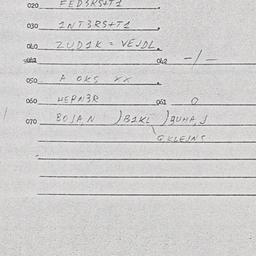 020 FED3RS+T1
030 1NT3RS+T1
040 ZUD1K = VEJDL
041 042 -/-
050 A OKS XX
060 HEPN3R 061 0
070 BOJAN )B1KL )QUHAJ
QKLEJNS